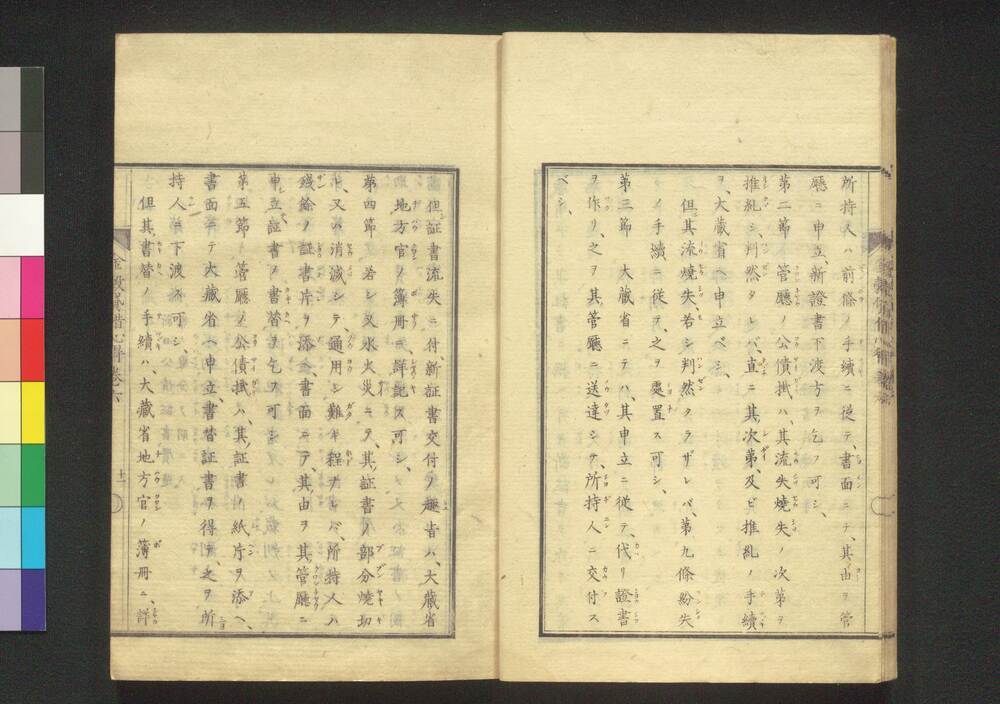 所持人ハ前條ノ手續ニ從テ、書面ニテ、其由ヲ管
廳ニ申立、新證書下渡方ヲ乞フ可シ、
第二節　管廳ノ公債掛ハ、其流失燒失ノ次第ヲ
推糺シ、判然タレバ、直ニ其次第、及ビ推糺ノ手續
ヲ、大藏省ヘ申立ベシ、
但其流燒失、若シ判然タラザレバ、第九條紛失
ノ手續ニ從テ、之ヲ處置ス可シ、
第三節　大藏省ニテハ、其申立ニ從テ、代リ證書
ヲ作リ、之ヲ其管廳ニ送達シテ、所持人ニ交付ス
ベシ、
但証書流失ニ付、新証書交付ノ趣旨ハ、大藏省
地方官ノ簿冊ニ詳記ス可シ、
第四節　若シ又水火災ニテ、其証書ハ部分燒切
レ、又ハ消滅シテ、通用シ難キ程ナレバ、所持人ハ
殘餘ノ証書片ヲ添、書面ニテ、其由ヲ其管廳ニ
申立、証書ノ書替ヲ乞ス可シ、
第五節　管廳ノ公債掛ハ、其証書ノ紙片ヲ添ヘ、
書面ニテ大藏省ヘ申立、書替証書ヲ得テ、之ヲ所
持人ニ下渡ス可シ、
但其書替ノ手續ハ、大藏省地方官ノ簿冊ニ、詳